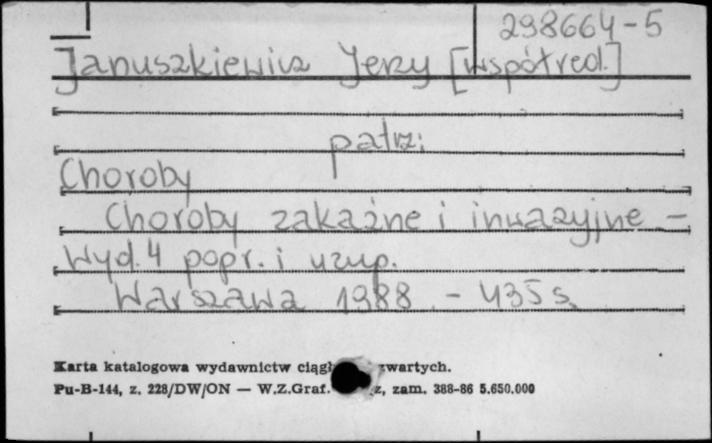 298664-5
Januszkiewicz Jerzy [współred.]
patrz:
Choroby
Choroby zakaźne i inwazyjne -
Wyd. 4 popr. i uzup.
Warszawa 1988 - 435 s.
Karta katalogowa wydawnictw ciągł zwartych.
Pu-B-144, z. 228/DW/ON — W.Z.Graf. z, zam. 388-86 5.650.000